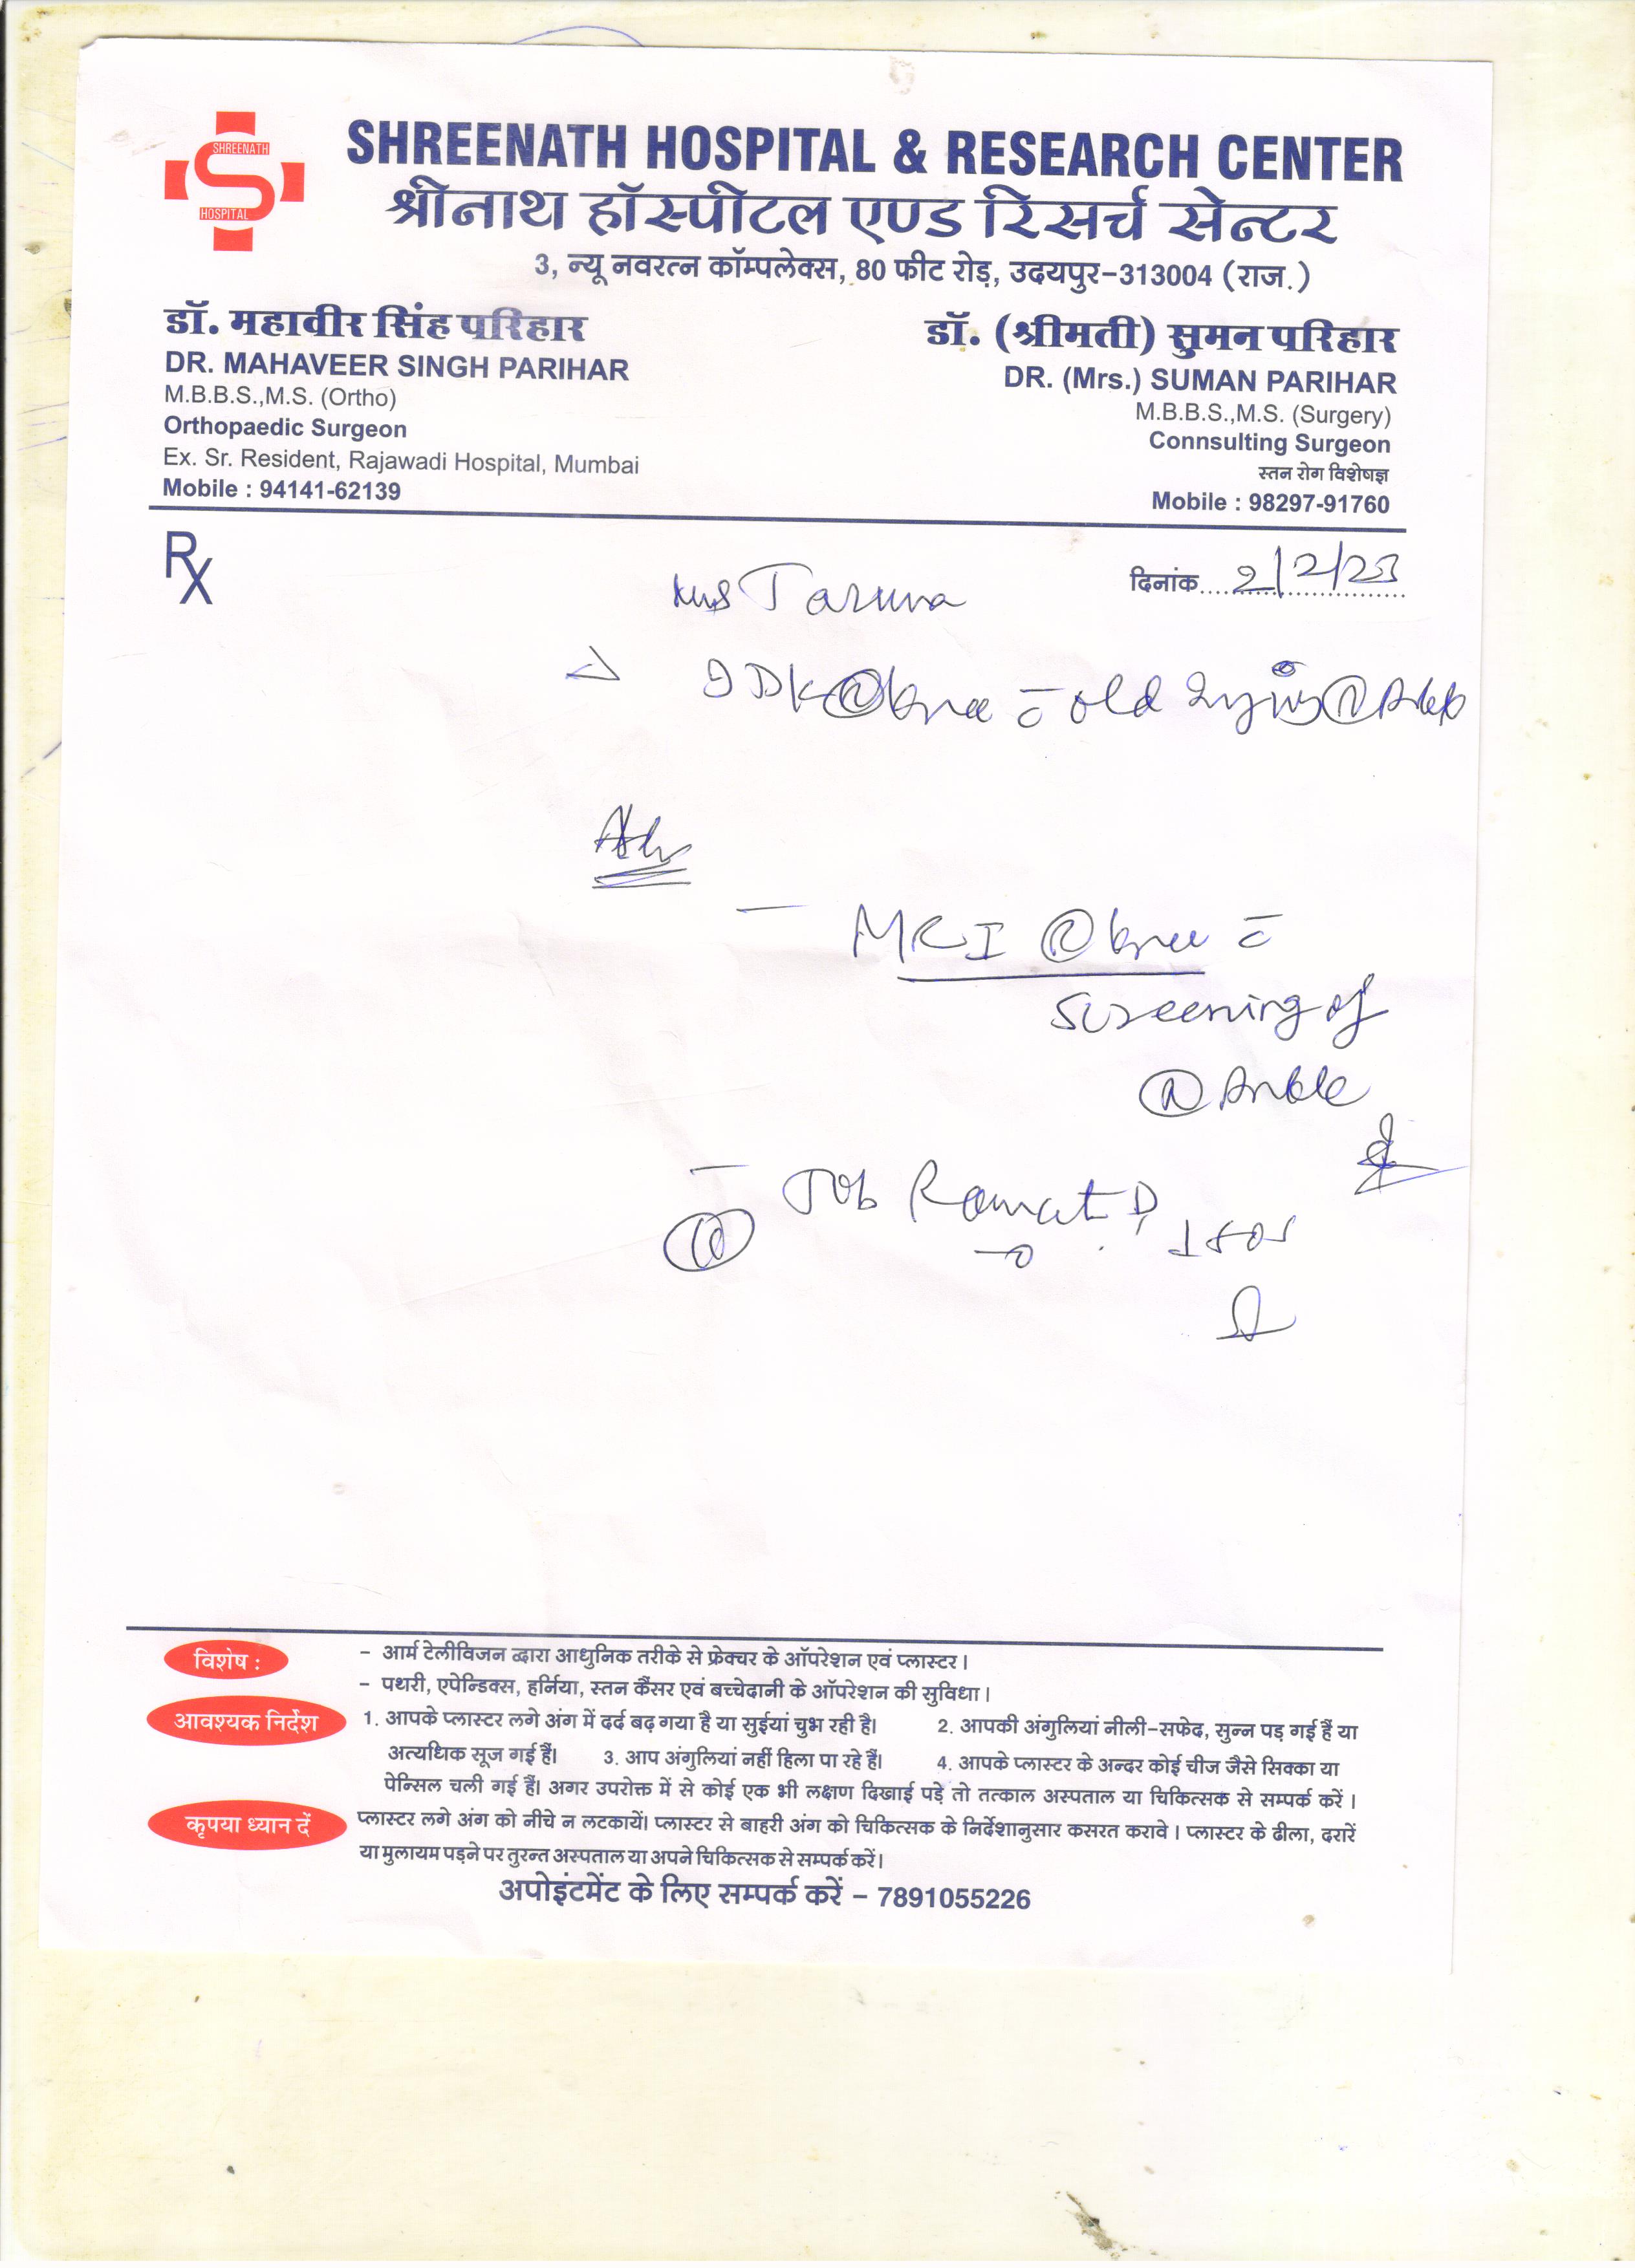 SHREENATH
HOSPITAL
SHREENATH HOSPITAL & RESEARCH CENTER
श्रीनाथ हॉस्पीटल एण्ड रिसर्च सेन्टर
3, न्यू नवरत्न कॉम्पलेक्स, 80 फीट रोड़, उदयपुर-313004 (राज.)
डॉ. महावीर सिंह परिहार
DR. MAHAVEER SINGH PARIHAR
M.B.B.S.,M.S. (Ortho)
Orthopaedic Surgeon
Ex. Sr. Resident, Rajawadi Hospital, Mumbai
Mobile : 94141-62139
डॉ. (श्रीमती) सुमन परिहार
DR. (Mrs.) SUMAN PARIHAR
M.B.B.S.,M.S. (Surgery)
Connsulting Surgeon
स्तन रोग विशेषज्ञ
Mobile : 98297-91760
Rx
दिनांक 2/2/23
Taruna
IDK (R) knee c old injury (R) Ankle
Adv
- MRI (R) knee c
screening of
(R) Ankle
- Tab D 1+0+1
(10)
विशेष :
- आर्म टेलीविजन द्वारा आधुनिक तरीके से फ्रेक्चर के ऑपरेशन एवं प्लास्टर।
- पथरी, एपेन्डिक्स, हर्निया, स्तन कैंसर एवं बच्चेदानी के ऑपरेशन की सुविधा।
आवश्यक निर्देश
1. आपके प्लास्टर लगे अंग में दर्द बढ़ गया है या सुईयां चुभ रही है। 2. आपकी अंगुलियां नीली-सफेद, सुन्न पड़ गई हैं या
अत्यधिक सूज गई हैं। 3. आप अंगुलियां नहीं हिला पा रहे हैं। 4. आपके प्लास्टर के अन्दर कोई चीज जैसे सिक्का या
पेन्सिल चली गई हैं। अगर उपरोक्त में से कोई एक भी लक्षण दिखाई पड़े तो तत्काल अस्पताल या चिकित्सक से सम्पर्क करें ।
कृपया ध्यान दें
प्लास्टर लगे अंग को नीचे न लटकायें। प्लास्टर से बाहरी अंग को चिकित्सक के निर्देशानुसार कसरत करावे। प्लास्टर के ढीला, दरारें
या मुलायम पड़ने पर तुरन्त अस्पताल या अपने चिकित्सक से सम्पर्क करें।
अपोइंटमेंट के लिए सम्पर्क करें - 7891055226